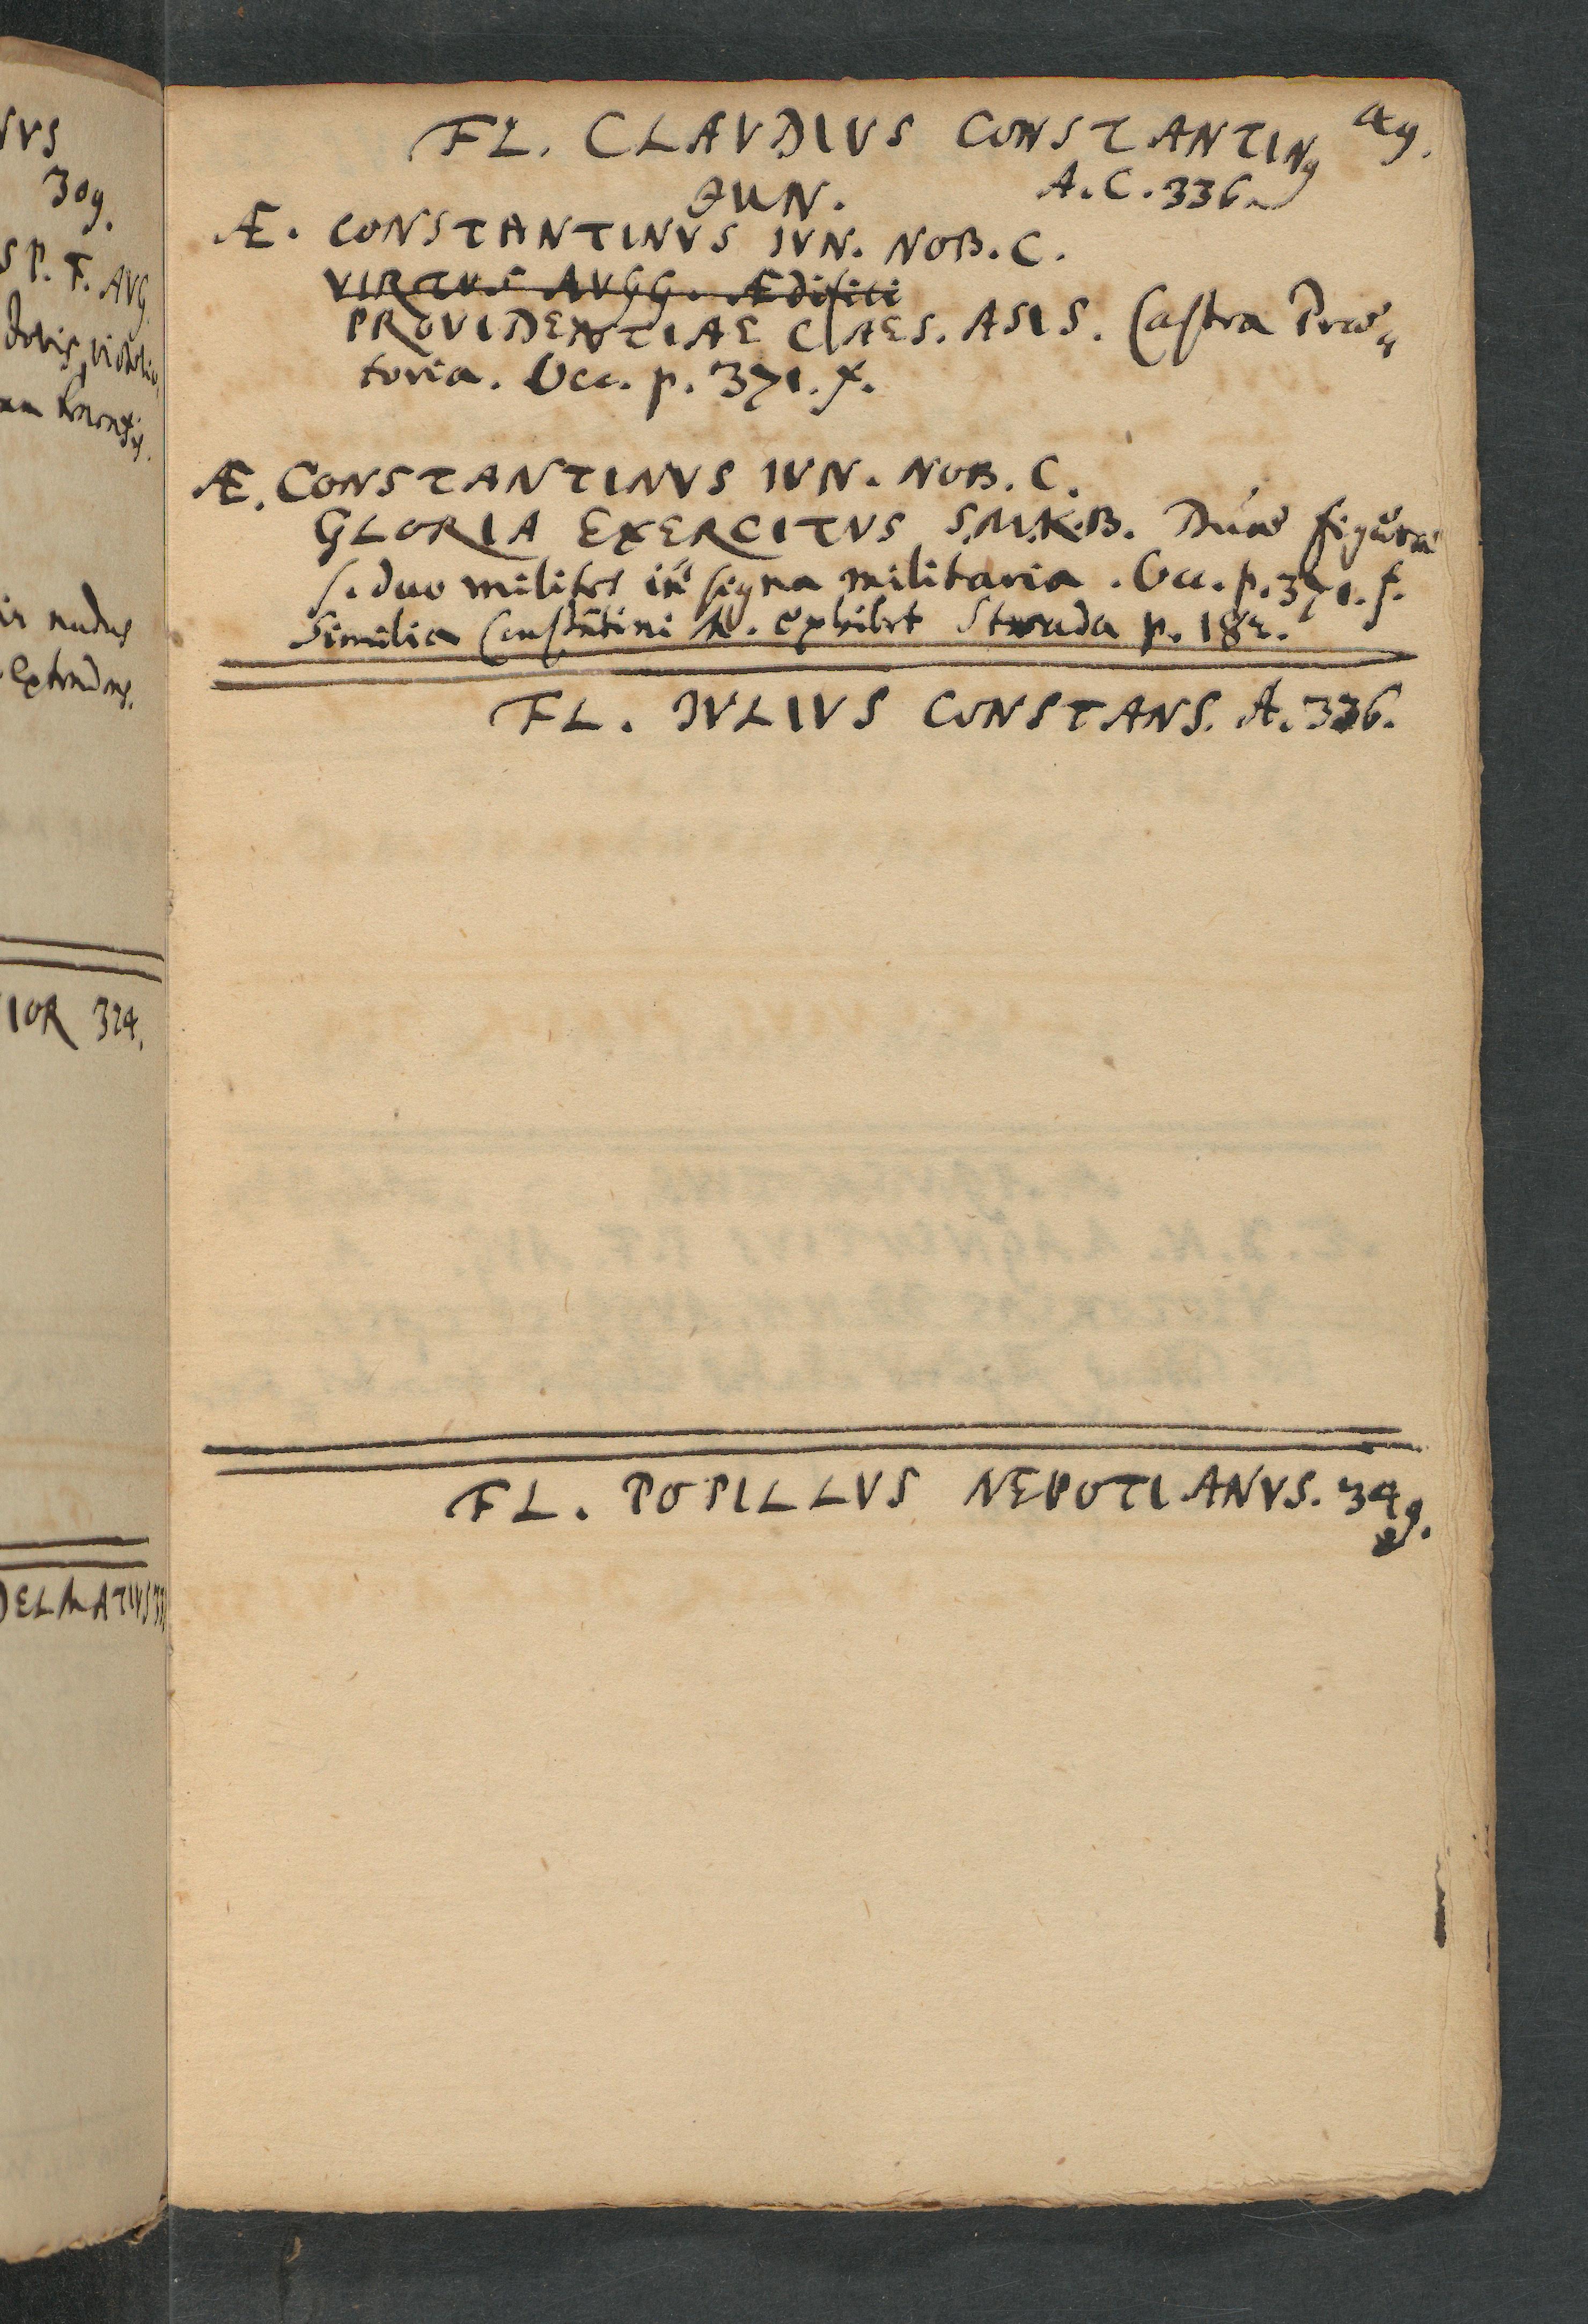 NVS
309.
S P. F. AVG
IOR 324.
DELMATIVS
49.
FL. CLAVDIVS CONSTANTIN9
JUN. A.C. 336.
Æ. CONSTANTINVS IVN. NOB. C.
VIRTVS AVGG. Ædifici
PROVIDENTIAE CAES. ASIS. Castra Præ„
toria. Occ. p. 371. f.
Æ. CONSTANTINVS IVN. NOB. C.
GLORIA EXERCITVS S.M.K.B. Duæ figuræ
s. duo milites iñ signa militaria. Occ. p. 371. f.
Similia Constãtini M. exhibet Strada p. 182.
FL. IVLIVS CONSTANS. A. 336.
FL. POPILLVS NEPOTIANVS. 349.